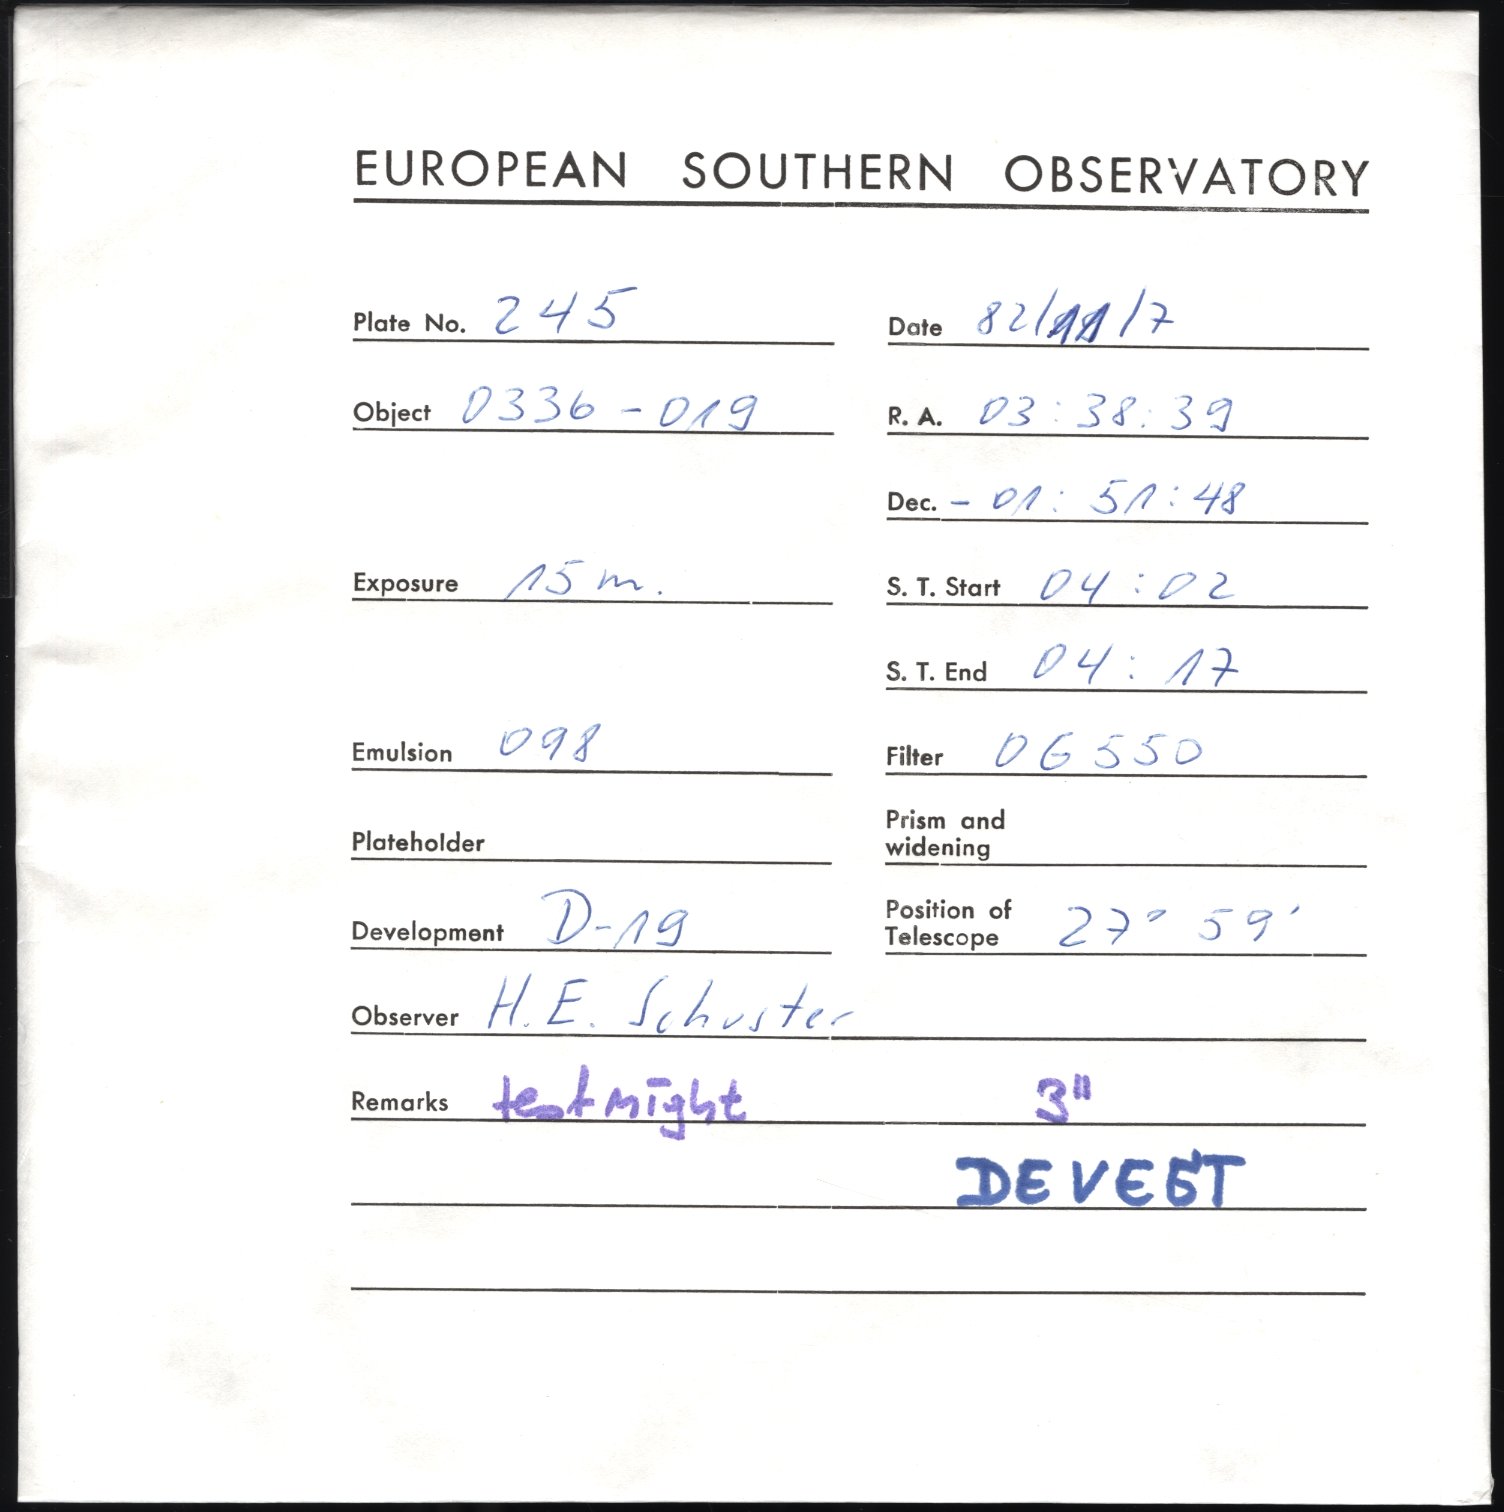 EUROPEAN SOUTHERN OBSERVATORY
Plate No. 245
Date 82/11/7
Object 0336-019
R. A. 03:38:39
Dec. - 01:51:48
Exposure 15 m.
S. T. Start 04:02
S. T. End 04:17
Emulsion 098
Filter OG 550
Plateholder
Prism and
widening
Development D-19
Position of
Telescope 27° 59'
Observer H.E. Schuster
Remarks test night 3"